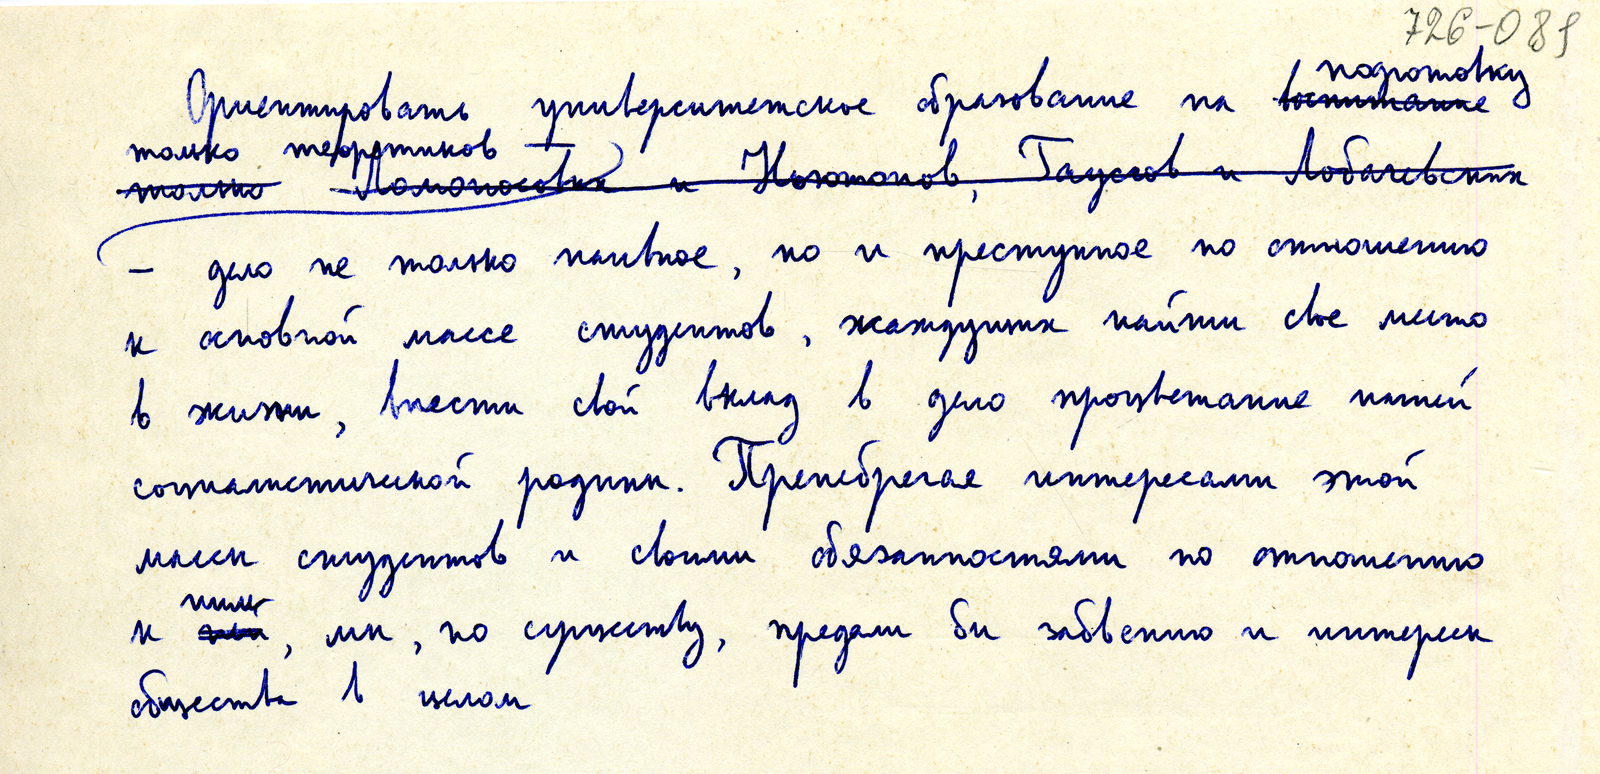 726-089
подготовку
Ориентировать университетское образование на воспитание
только теоретиков
только Ломоносовых и Ньютонов, Гауссов и Лобачевских
— дело не только наивное, но и преступное по отношению
к основной массе студентов, жаждущих найти свое место
в жизни, внести свой вклад в дело процветание нашей
социалистической родины. Пренебрегая интересами этой
массы студентов и своими обязанностями по отношению
ним
к , мы, по существу, предали бы забвению и интересы
общества в целом